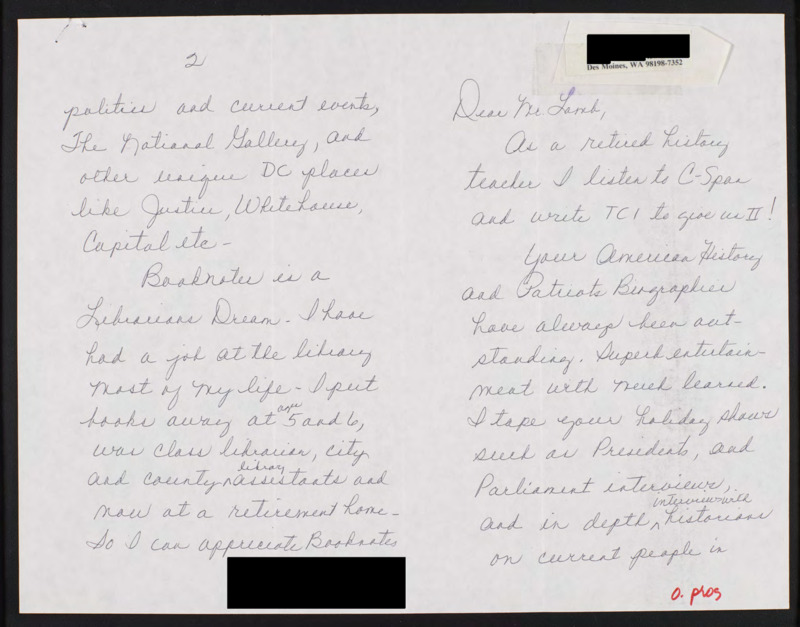 Des Moines, WA 98198-7352
Dear Mr. Lamb,
As a retired history
teacher I listen to C-Span
and write TCI to give us II!
Your American History
and Patriots Biographies
have always been out-
standing. Superb entertain-
ment with much learned.
I tape your holiday shows
such as Presidents, and
Parliament interviews,
and in depth interviews with historians
on current people in
O. pros
2
politics and current events,
The National Gallery, and
other unique DC places
like Justice, Whitehouse,
Capital etc -
Booknotes is a
Librarians Dream - I have
had a job at the library
most of my life - I put
books away at age 5 and 6,
was class librarian, city
and county library assistants and
now at a retirement home -
So I can appreciate Booknotes